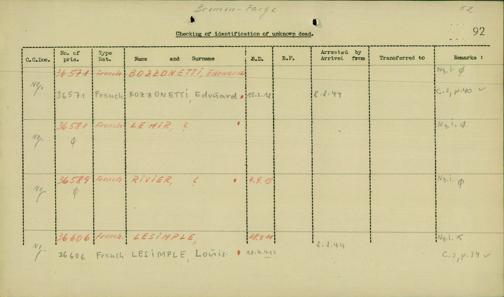 Bremen-Farge
52
Checking of identification of unknown dead.
92
C.C.Doc. No. of pris. Type Nat. Name and Surname B.D. B.P. Arrested by Arrived from Transferred to Remarks :
36571 French BOZZONETTI, Edouard Ng.i. φ
Ng. 36571 French BOZZONETTI, Edouard 8.8.44 C.3, p.40 ✓
36581 French LEMIR, ς Ng.i. φ
Ng. φ
36589 French RIVIER, ς Ng.i. φ
Ng. φ
36606 French LESIMPLE, Ng.i.
Ng. 36606 French LESIMPLE, Louis 8.8.44 C.3, p.34 ✓